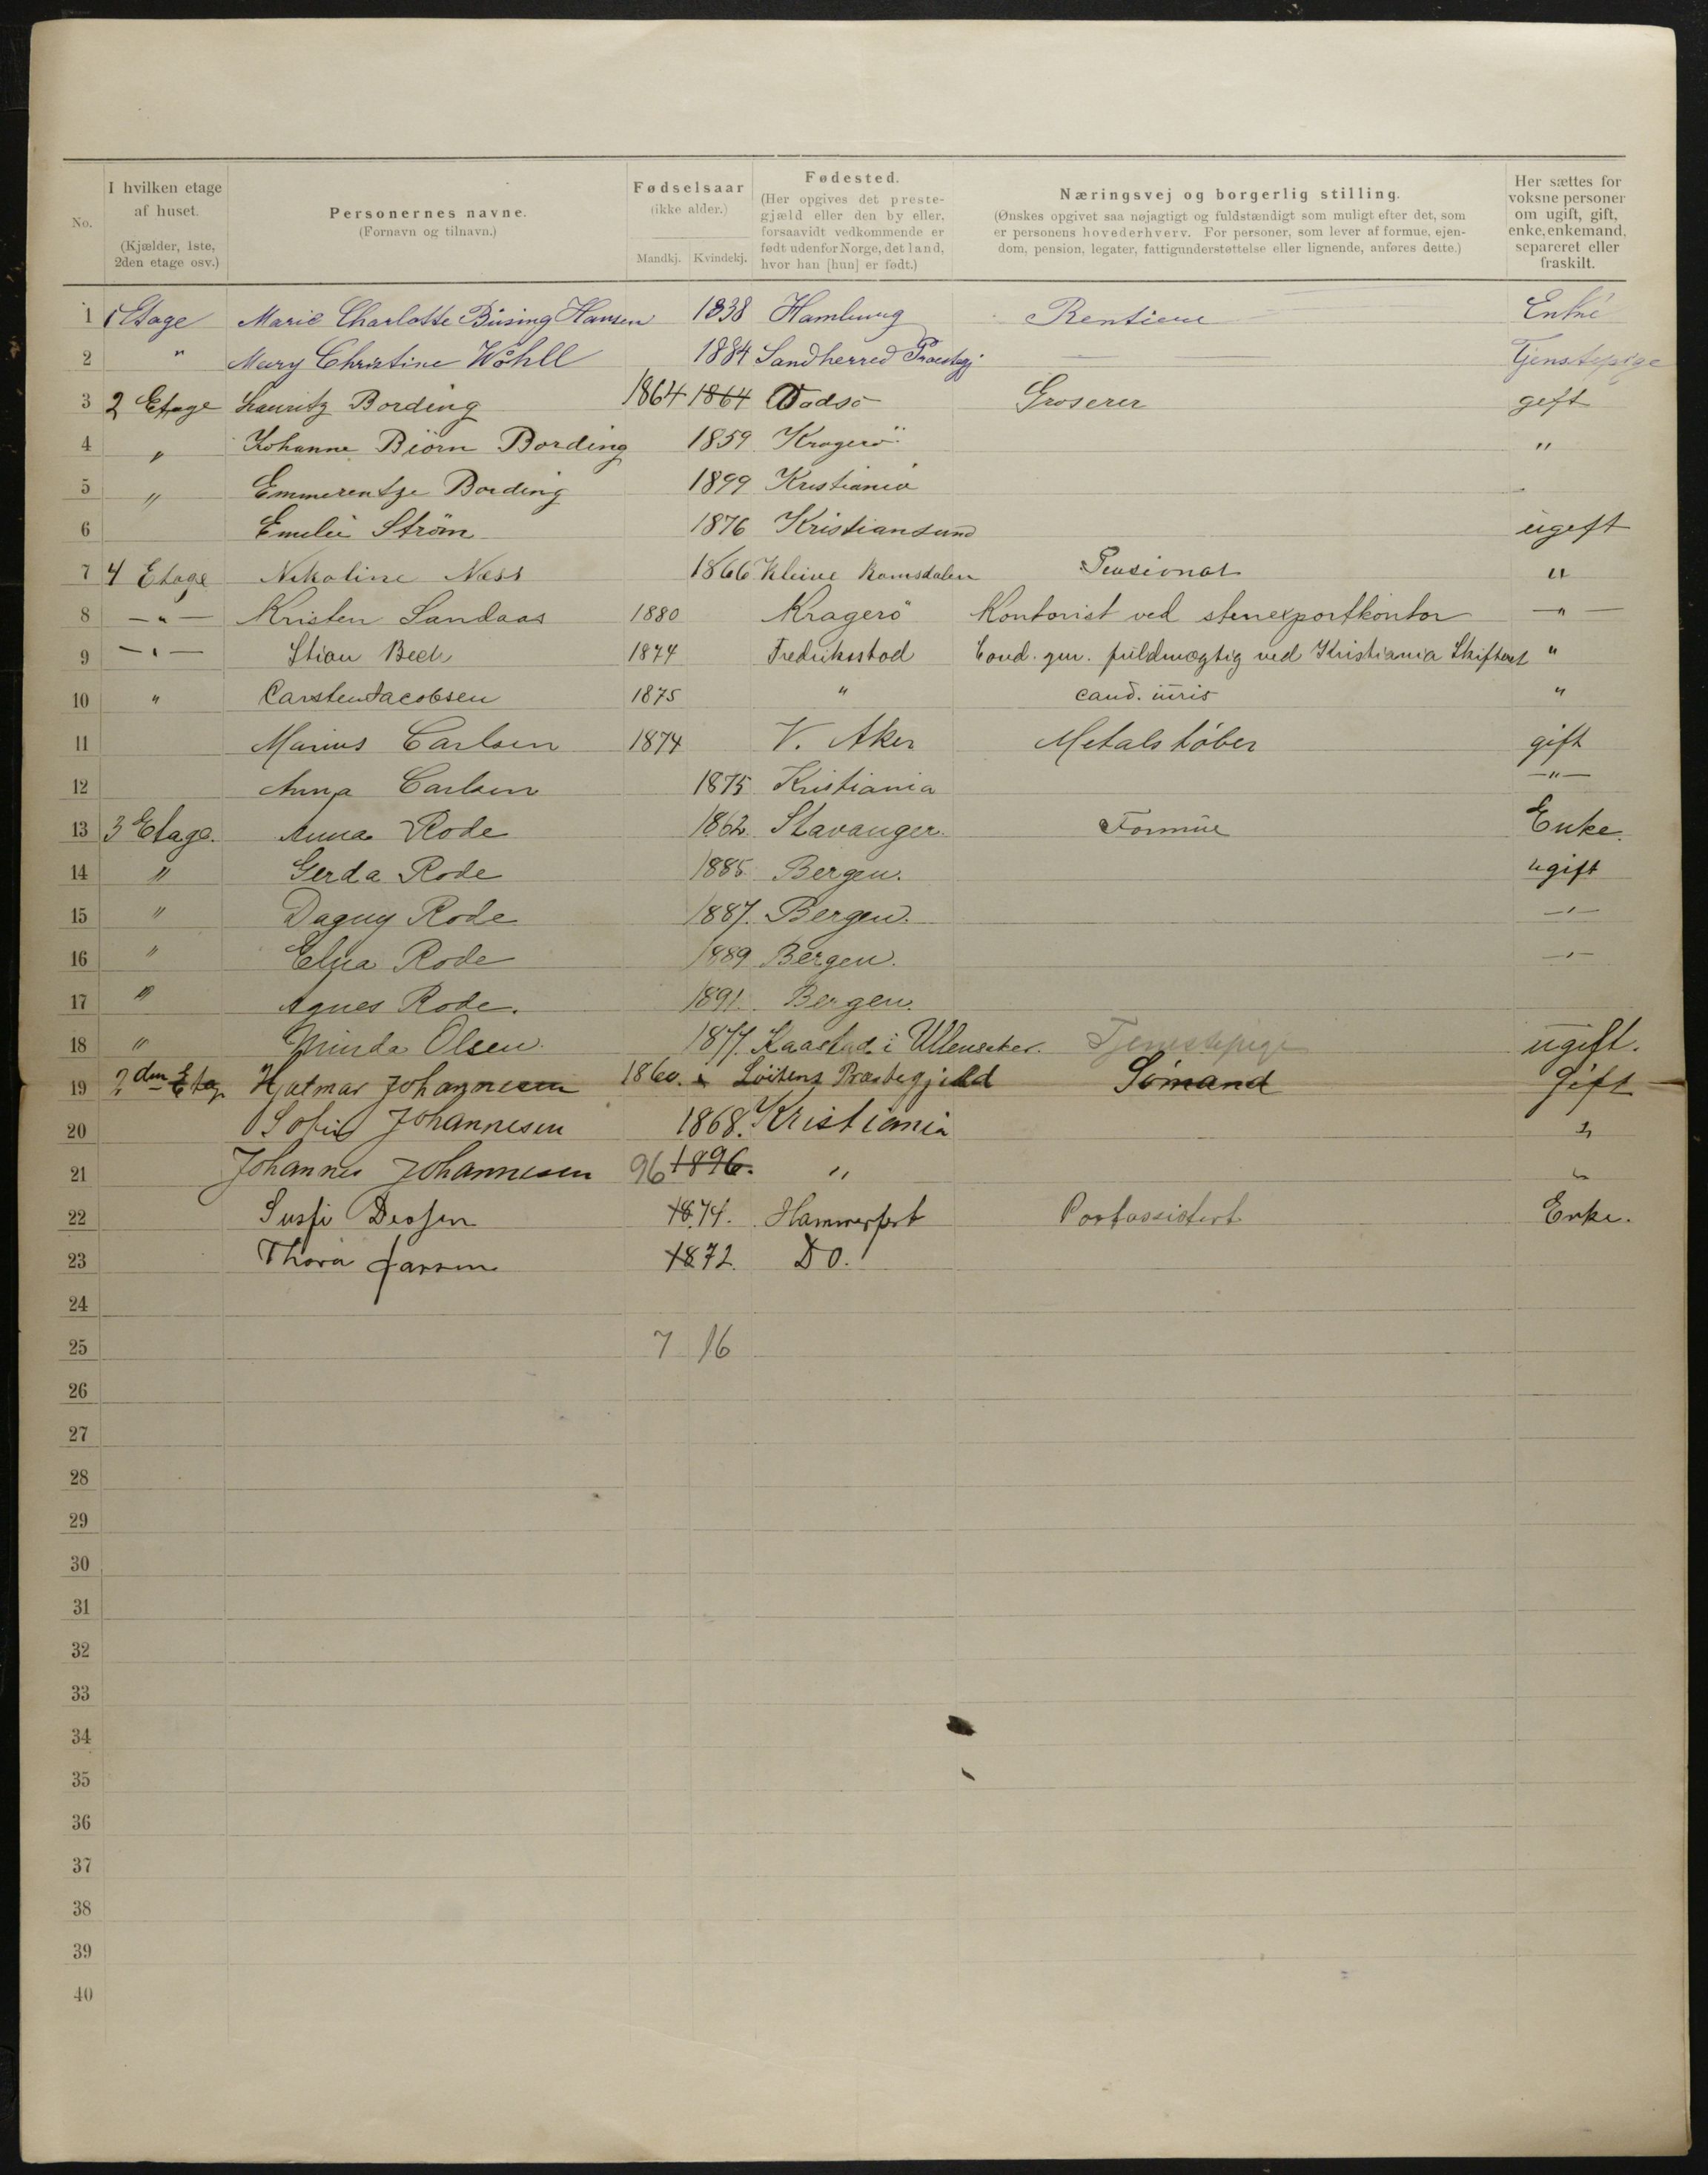 No.
I hvilken etage af huset. (Kjælder, 1ste, 2den etage osv.)
Personernes navne. (Fornavn og tilnavn.)
Fødselsaar (ikke alder.) Mandkj. Kvindekj.
Fødested. (Her opgives det prestegjæld eller den by eller, forsaavidt vedkommende er født udenfor Norge, det land, hvor han [hun] er født.)
Næringsvej og borgerlig stilling. (Ønskes opgivet saa nøjagtigt og fuldstændigt som muligt efter det, som er personens hovederhverv. For personer, som lever af formue, ejendom, pension, legater, fattigunderstøttelse eller lignende, anføres dette.)
Her sættes for voksne personer om ugift, gift, enke, enkemand, separeret eller fraskilt.
1 1 Etage Marie Charlotte Büsing Hansen 1838 Hamburg Rentiere Enke
2 " Mary Christine Wøhll 1884 Sandherred Præstegj Tjenstepige
3 2 Etage Lauritz Bording 1864 1864 Vadsö Groserer geft
4 " Johanne Biörn Bording 1859 Kragerö "
5 " Emmerentze Bording 1899 Kristiania
6 Emelie Ström 1876 Kristiansund ugeft
7 4 Etage Nikoline Næss 1866 Kleive Romsdalen Pensionat "
8 —"— Kristen Sandaas 1880 Kragerö Kontorist ved stenexportkontor —"—
9 —"— Stian Bech 1874 Fredriksstad Cand. jur. fuldmægtig ved Kristiania Skifteret "
10 " Carsten Jacobsen 1875 " cand. iuris "
11 Marius Carlsen 1874 V. Aker Metalstøber gift
12 Anna Carlsen 1875 Kristiania —"—
13 3 Etage. Anna Rode 1862 Stavanger. Formue Enke.
14 " Gerda Rode 1885 Bergen. ugift
15 " Dagny Rode 1887. Bergen. —"—
16 " Elna Rode 1889 Bergen. —"—
17 " Agnes Rode. 1891. Bergen.
18 " Minda Olsen. 1877. Kaastad i Ullensaker. Tjenestepige ugift.
19 2den Etag Hjalmar Johannesen 1860. Löitens Præstegjeld Sömand Gift
20 Sofie Johannesen 1868. Kristiania "
21 Johannes Johannesen 96 1896. " "
22 1874. Hammerfest Postassistent Enke.
23 Thora 1872. Do.
24
25 7 16
26
27
28
29
30
31
32
33
34
35
36
37
38
39
40